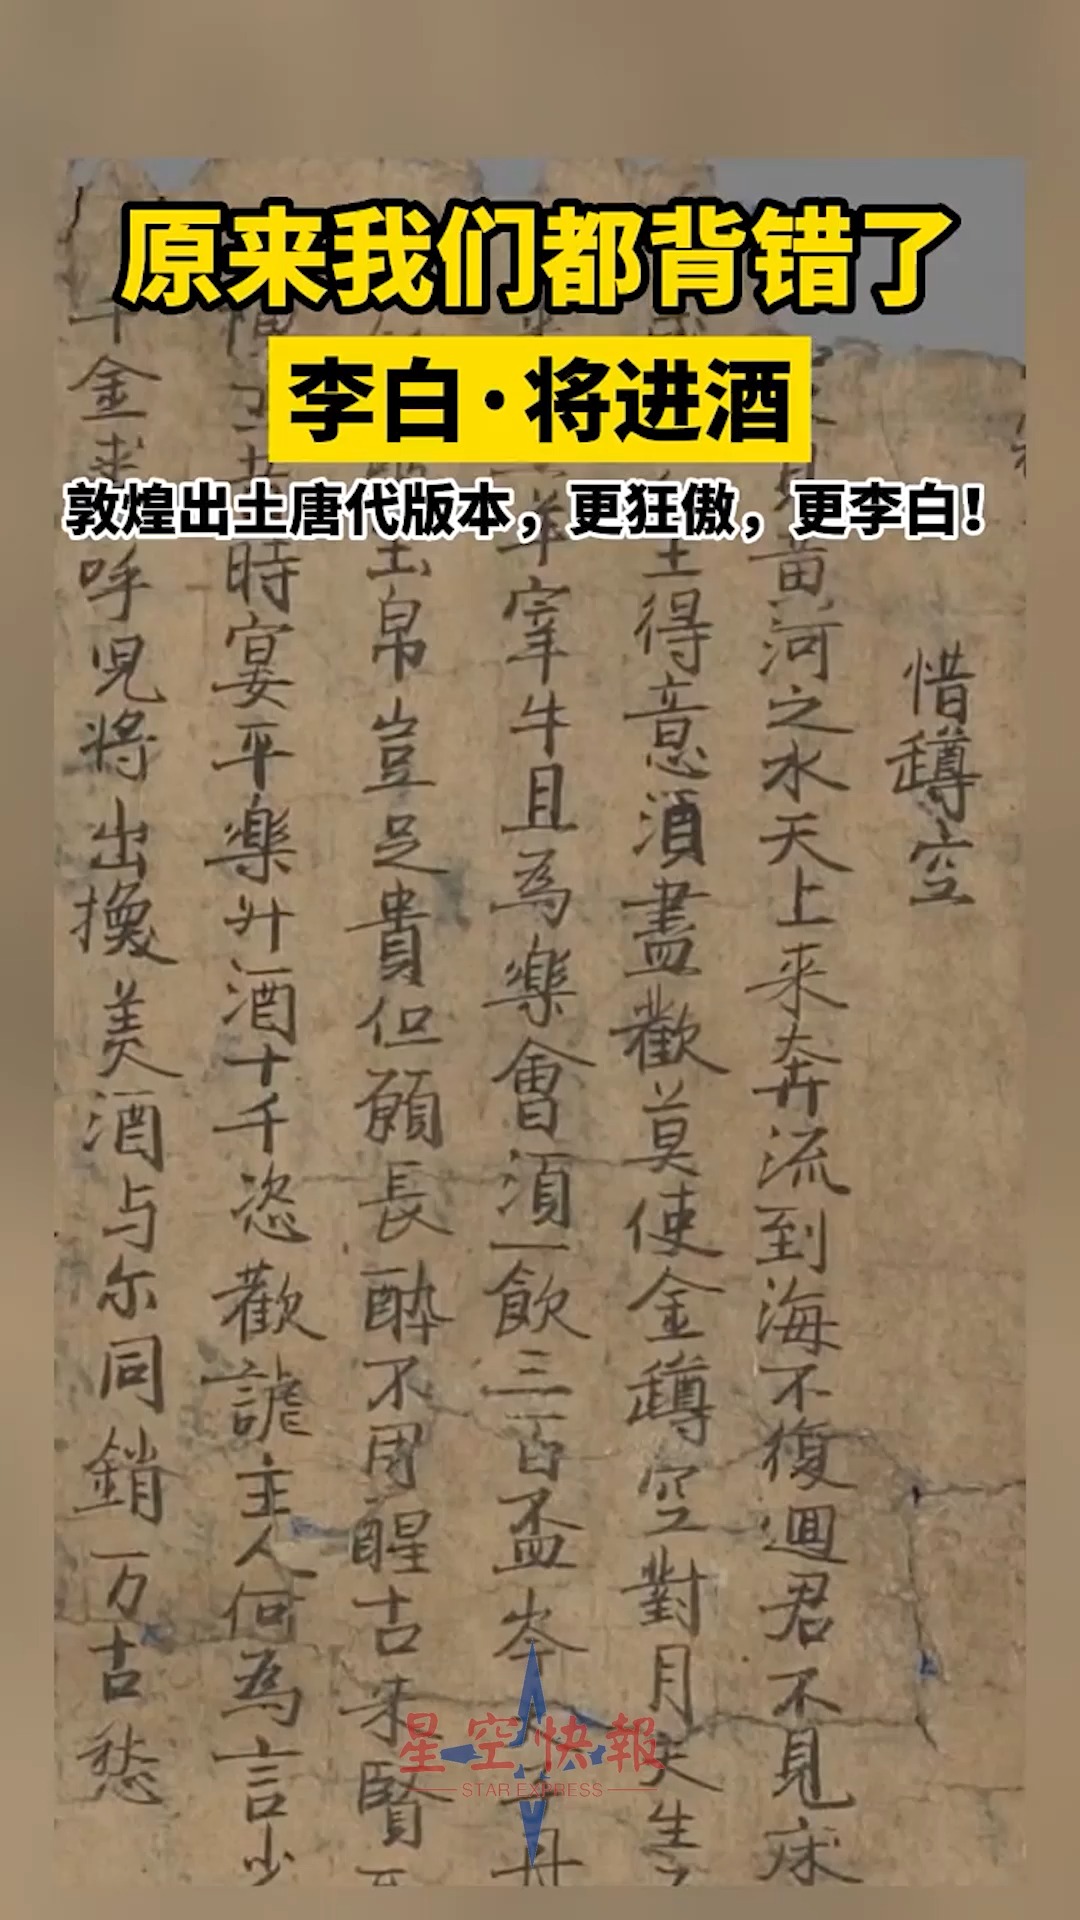 原来我们都背错了
李白·将进酒
敦煌出土唐代版本，更狂傲，更李白！
惜罇空
黃河之水天上来奔流到海不復迴君不見床
生得意湏盡歡莫使金罇空對月天生
羊宰牛且為樂會湏一飲三百盃岑
玉帛豈足貴但願長醉不用醒古来賢
時宴平樂斗酒十千恣歡謔主人何為言少
千金裘呼兒將出換美酒与尔同銷万古愁
星空快報
STAR EXPRESS